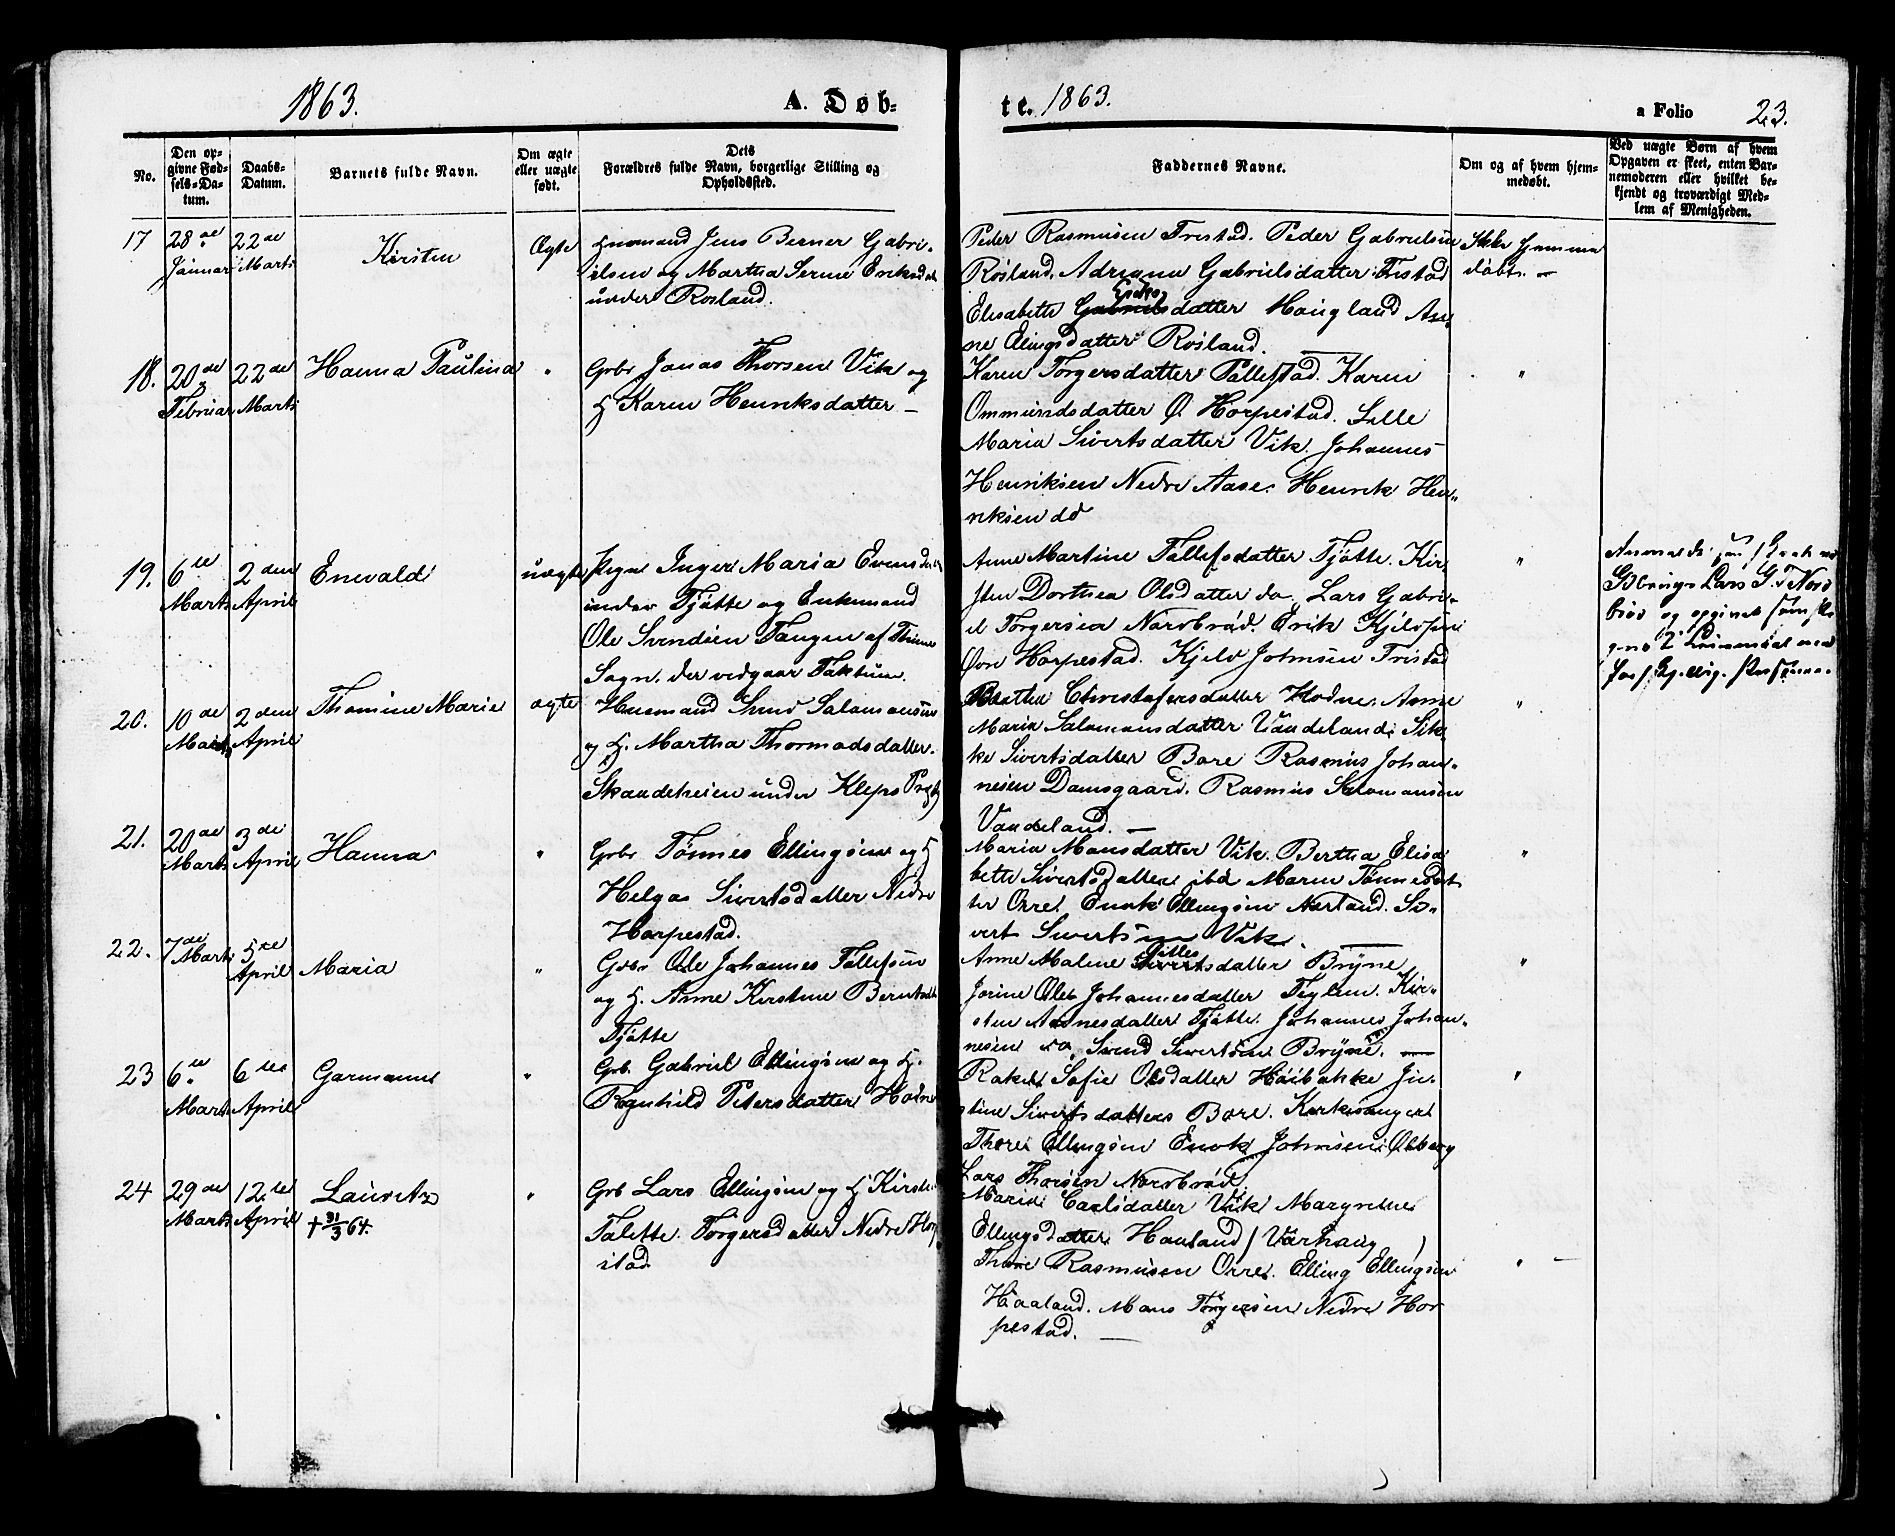 1863.
A. Døb-
te. 1863.
a Folio 23.
No.
Den op-
givne Fød-
sels-Da-
tum.
Daabs-
Datum.
Barnets fulde Navn.
Om ægte
eller uægte
født.
Dets
Forældres fulde Navn, borgerlige Stilling og
Opholdssted.
Faddernes Navne.
Om og af hvem hjem-
medøbt.
Ved uægte Børn af hvem
Opgaven er skeet, enten Bar-
nemoderen eller hvilket be-
kjendt og troværdigt Med-
lem af Menigheden.
17
28de
Januar
22de
Marts
Kirsten
Ægte
Huusmand Jens Berner Gabri-
elsen og Martha Serine Eriksdatt
under Rosland.
Peder Rasmusen Tristad. Peder Gabrielsen
Rosland. Adriane Gabrielsdatter Tristad
Elisabeth Gabrielsdatter Haugland An-
Eriks
ne Elingsdatter Rosland.
Ikke hjemme
døbt. —
18.
20de
Februar
22de
Marts
Hanna Paulina
"
Grbr Jonas Thorsen Vik og
H Karen Henriksdatter —
Karen Torgersdatter Pallestad. Karen
Ommundsdatter Ø. Horpestad. Lille
Maria Sivertsdatter Vik. Johannes
Henriksen Nedre Aase. Henrik Hen-
riksen do
"
19.
6te
Marts
2den
April
Enevald
uægte
Pige Inger Maria Evensdatter
under Tjøtte og Enkemand
Ole Svendsen Tangen af Thime
Sogn. der vedgaar Faktum.
Anne Martine Tallefsdatter Tjøtte. Kir
sten Dorthea Olsdatter do. Lars Gabri-
el Torgersen Nordbrød. Erik Kjeldsen
Øvr Horpestad. Kjeld Johnsen Tristad
"
Lars G. Nord
brød og opgivet
20.
10de
Marts
2den
April
Thomine Marie
ægte
Huusmand Svend Salamonsen
og H. Martha Thormodsdatter.
Skandetreien under Klepp Prgj
Berthe Christofersdatter Hodne. Anne
Maria Salamonsdatter Vaadeland. Sik
ke Sivertsdatter Bore Rasmus Johan-
nesen Damsgaard. Rasmus Salamonsen
Vaadeland. —
"
21.
20de
Marts
3de
April
Hanna
"
Grbr Tønnes Ellingsen og H
Helga Sivertsdatter Nedre
Horpestad.
Maria Monsdatter Vik. Bertha Elisa
beth Sivertsdatter ibd Maren Tønnesdat-
ter Orre. Enok Ellingsen Nærland. Si-
vert Sivertsen Vik. —
"
22.
7de Marts
5te
April
Maria
"
Grbr Ole Johannes Tallefsen
og H. Anne Kirstine Berntsdtr
Tjøtte
Anne Malene Sivertsdatter Bryne
Jorine Olea Johannesdatter Teglen. Kir-
sten Aanesdatter Tjøtte. Johannes Johan-
nesen do. Svend Sivertsen Bryne. —
"
23
6te
Marts
6te
April
Garmann
"
Grb. Gabriel Ellingsen og H.
Ragnhild Petersdatter Hodne
Rakel Sofie Olsdatter Høibakke Ju-
stine Sivertsdatter Bore. Kirkesanger
Thore Ellingsen Enok Johnsen Ølberg
Lars Thorsen Nordbrød.
"
24
29de
Marts
12te
April
Lauritz
+ 31/3 64.
"
Grb Lars Ellingsen og H Kirsti
Talette Torgersdatter Nedre Horp
istad
Maria Carlsdatter Vik Margrethe
Ellingsdatter Haaland / Varhaug /
Thore Rasmusen Orre. Elling Ellingsen
Haaland. Mons Torgersen Nedre Hor-
pestad. —
" —